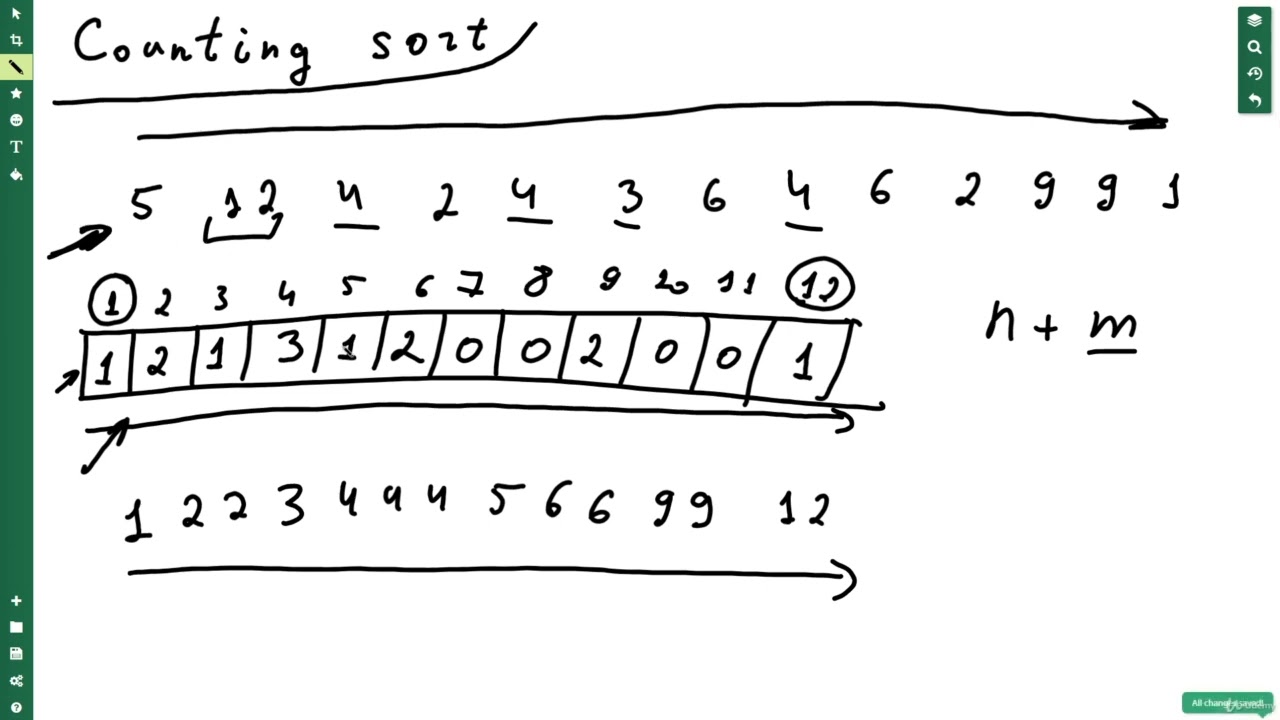 Counting sort
5 12 4 2 4 3 6 4 6 2 9 9 1
1 2 3 4 5 6 7 8 9 10 11 12
1 2 1 3 1 2 0 0 2 0 0 1
n + m
1 2 2 3 4 4 4 5 6 6 9 9 12